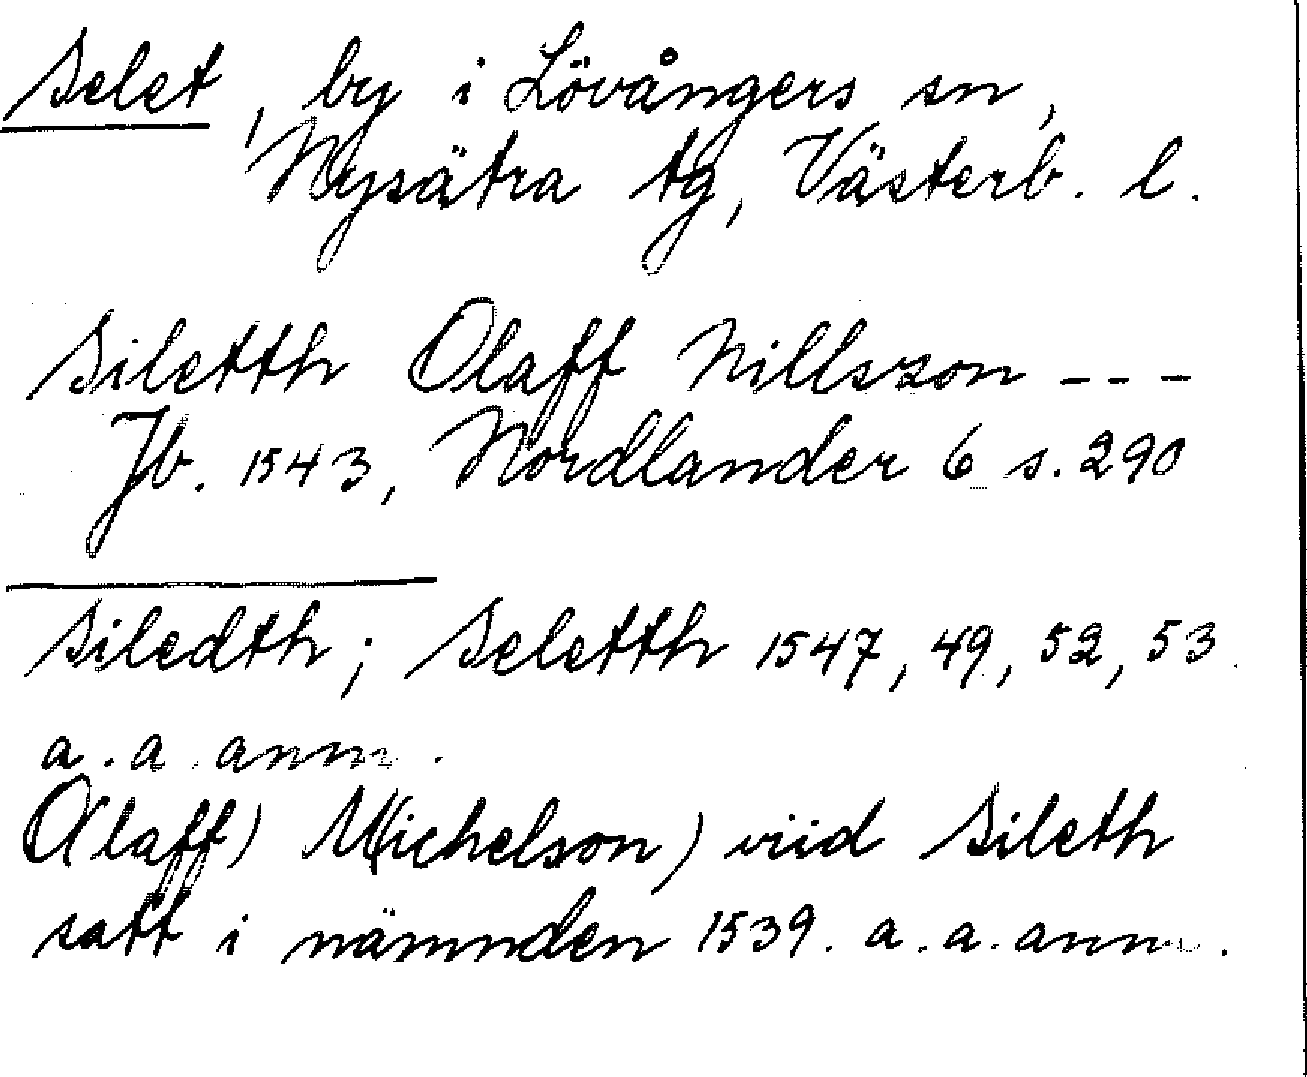 Selet, by i Lövångers sn,
Nysätra tg, Västerb. l.
Siletth Olaff Nillsson ---
Jb. 1543, Nordlander 6 s. 290
Siledth; Seletth 1547, 49, 52, 53.
a.a. anm.
O(laff) M(ichelson) viid Sileth
satt i nämnden 1539. a.a. anm.